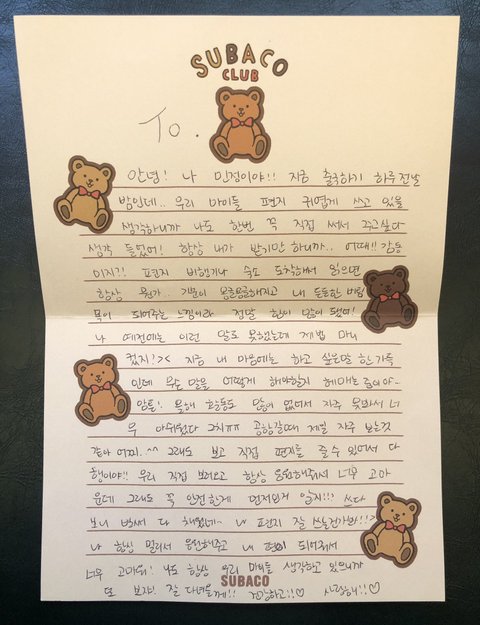 SUBACO
CLUB
To.
안녕! 나 민정이야!! 지금 출국하기 하루 전날
밤인데.. 우리 마이들 편지 귀엽게 쓰고 있을
생각하니까 나도 한번 꼭 직접 써서 주고싶다
생각 들었어! 항상 내가 받기만 하니까.. 어때!! 감동
이지?! 편지 비행기나 숙소 도착해서 읽으면
항상 뭔가.. 기분이 몽글몽글해지고 내 든든한 버팀
목이 되어주는 느낌이라 정말 힘이 많이 됐어!
나 예전에는 이런 말도 못했는데 제법 마니
컸지!>< 지금 내 마음에는 하고 싶은말 한가득
인데 무슨 말을 어떻게 해야할지 헤매는 중이야~
암튼! 올해 활동도 많이 없어서 자주 못봐서 너
무 아쉬웠다 그치ㅠㅠ 공항갈때 제일 자주 보는것
같아 어찌..^^ 그래도 보고 직접 편지를 줄 수 있어서 다
행이야!! 우리 직접 보러오고 항상 응원해줘서 너무 고마
운데 그래도 꼭 안전한게 먼저인거 알지!!! 쓰다
보니 벌써 다 채웠네~ 내 편지 잘 쓰는건가봐!!>
나 항상 멀리서 응원해주고 내 편이 되어줘서
너무 고마워! 나도 항상 우리 마이들 생각하고 있으니까
또 보자! 잘 다녀올께!! 건강하고!!♡ 사랑해!!♡
SUBACO